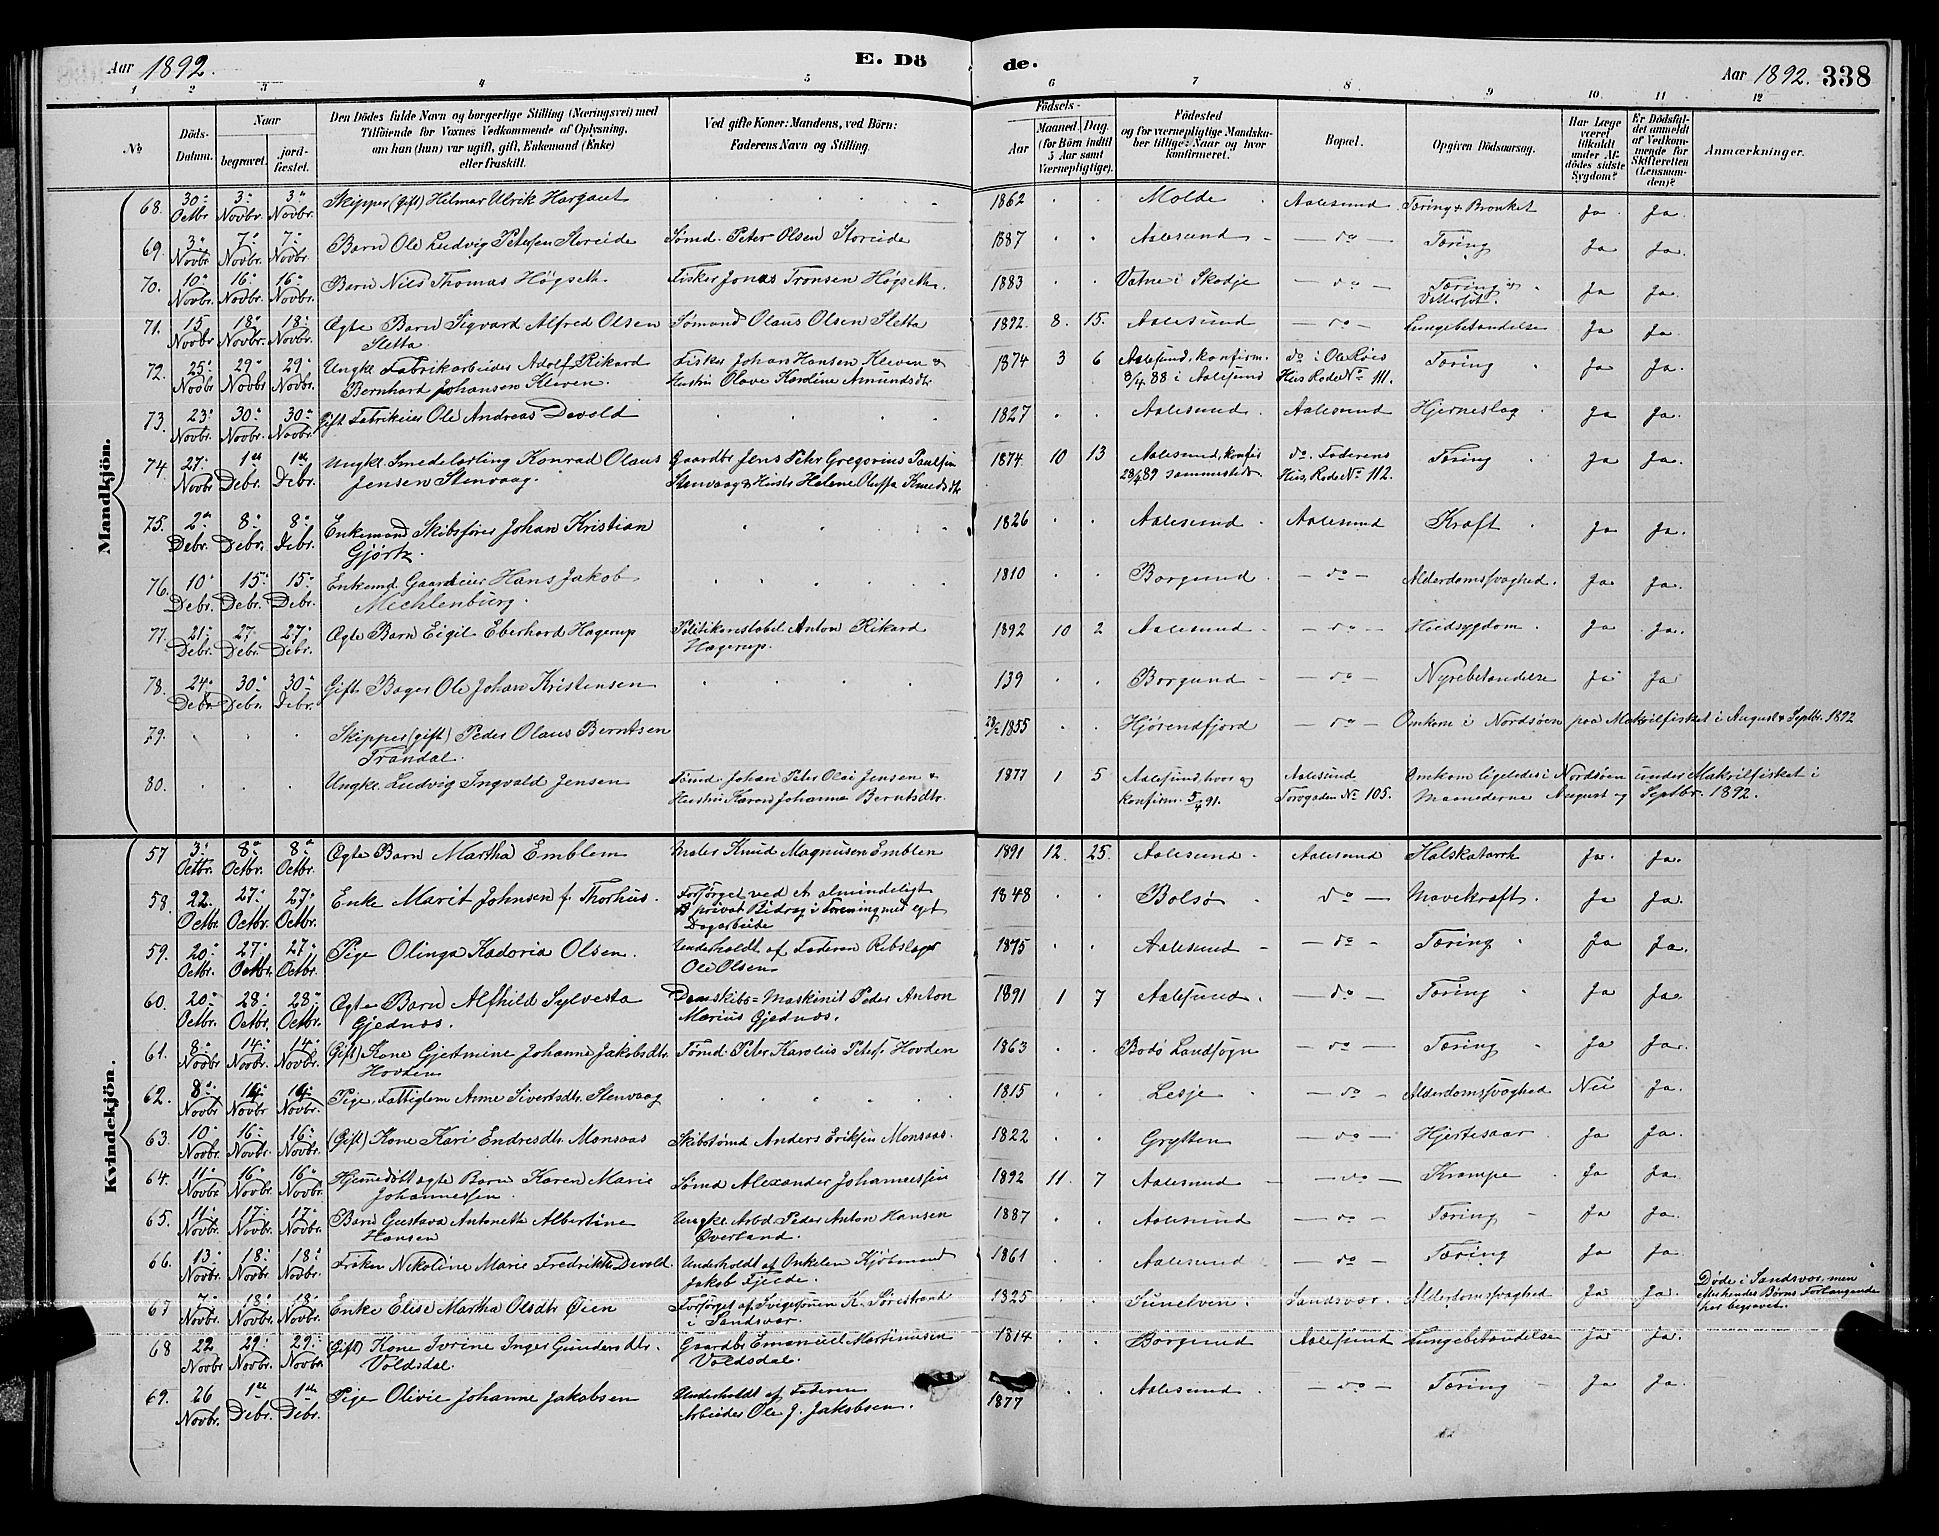 Aar 1892. E. Dö de. Aar 1892. 338
1 2 3 4 5 6 7 8 9 10 11 12
No Döds-Datum. Naar begravet. jordfæstet. Den Dödes fulde Navn og borgerlige Stilling (Næringsvei) med Tilföiende for Voxnes Vedkommende af Oplysning, om han (hun) var ugift, gift, Enkemand (Enke) eller fraskilt. Ved gifte Koner: Mandens, ved Börn: Faderens Navn og Stilling. Födsels- Aar Maaned. Dag. (for Börn indtil 5 Aar samt Værnepligtige). Födested og for værnepligtige Mandskaber tillige: Naar og hvor konfirmeret. Bopæl. Opgiven Dödsaarsag. Har Læge været tilkaldt under Afdödes sidste Sygdom? Er Dödsfaldet anmeldt af Vedkommende for Skifteretten (Lensmanden)? Anmærkninger.
Mandkjön.
68. 30 Octbr 3 Novbr. 3 Novbr. Skipper (gift) Hilmar Ulrik Hargaut 1862 Molde Aalesund Tæring & Bronket Ja Ja.
69. 3 Novbr. 7 Novbr. 7 Novbr. Barn Ole Ludvig Petersen Storeide Sømd. Peter Olsen Storeide 1887 Aalesund do Tæring Ja Ja.
70. 10 Novbr. 16 Novbr. 16 Novbr. Barn Nils Thomas Högseth Fisker Jonas Tronsen Högseth. 1883 Vatne i Skodje do Tæring Ja Ja.
71. 15 Novbr 18 Novbr. 18 Novbr. Ægte Barn Sigvard Alfred Olsen Sømand Olaus Olsen Sletta 1892. 8. 15. Aalesund do Lungebetændelse Ja Ja.
Sletta
72. 25 Novbr 29 Novbr 29 Novbr. Ungke Fabrikarbeider Adolf Rikard Fisker Johan Hansen Kleven & 1874 3 6 Aalesund, konfirm. do i Ole Röes Tæring Ja Ja.
Bernhard Johansen Kleven. Hustru Olave Kardine Amundsdtr 8/4 88 i Aalesund Hus Rode No 111.
73. 23 Novbr. 30 Novbr. 30 Novbr. Gift Fabrikeier Ole Andreas Devold 1827 Aalesund Aalesund Hjerneslag Ja Ja.
74. 27 Novbr 1ste Debr. 1ste Debr. Ungke. Smedelærling Konrad Olaus Gaardbr Jens Peter Gregorius Paulsen 1874. 10 13 Aalesund, konfir do. Faderens Tæring Ja Ja.
Jensen Stenvaag. Stenvaag & Hustr Helene Oluffa Knudsdtr 28/4 89 sammesteds Hus, Rode No 112.
75. 2 Debr. 8 Debr. 8 Debr. Enkemand Skibsförer Johan Kristian 1826 Aalesund Aalesund Kræft Ja Ja.
Gjørtz.
76. 10 Debr. 15 Debr. 15 Debr. Enkemd. Gaardeier Hans Jakob 1810 Borgund do Alderdomssvaghed. Ja Ja.
Mechlenburg.
77. 21 Debr. 27 Debr. 27 Debr. Ægte Barn Eigil Eberhard Hagerup Politikonstabel Anton Rikard 1892 10 2 Aalesund do Hudsygdom Ja Ja.
Hagerup.
78. 24 Debr 30 Debr. 30 Debr. Gift Bager Ole Johan Kristensen 139 Borgund do Nyrebetændelse Ja Ja
79. Skipper (gift) Peder Olaus Berntsen 28/2 1855 Hjörendfjord do Omkom i Nordsöen paa Makrilfisket i August & Septbr. 1892
Trandal.
80. Ungke. Ludvig Ingvald Jensen Sømd. Johan Peter Olai Jensen & 1877 1 5 Aalesund, hvor og Aalesund Omkom ligeledes i Nordsöen under Makrilfisket i
Hustru Karen Johanne Berntsdtr. konfirm. 5/4 91. Torvgaden No 105. Maanederne August og Septbr. 1892.
Kvindekjön.
57 3 Octbr. 8 Octbr. 8 Octbr. Ægte Barn Martha Emblem Maler Knud Magnusen Emblem 1891 12. 25. Aalesund Aalesund Halskatarrh Ja. Ja.
58. 22. Octbr. 27 Octbr. 27 Octbr. Enke Marit Johnsen f. Thorhus. Forsörget ved et almindeligt 1848 Bolsø do Mavekræft. Ja Ja.
privat Bidrag i Forening med eget
Dagarbeide
59. 20 Octbr. 27 Octbr. 27 Octbr. Pige Olinga Kadoria Olsen. Underholdt af Faderen Rebslager 1875 Aalesund do Tæring Ja Ja.
Ole Olsen
60. 20 Octbr. 28 Octbr. 28 Octbr. Ægte Barn Alfhild Sylvesta Damskibs-Maskinist Peder Anton 1891 1 7 Aalesund. do Tæring Ja Ja.
Gjednæs. Marius Gjednæs.
61. 8 Novbr 14 Novbr. 14 Novbr. (Gift) Kone Gjertmine Johanne Jakobsdtr. Sømd. Peter Karolius Peters. Hovden 1863 Bodö Landsogn do Tæring Ja Ja.
Hovden
62. 8 Novbr 14 Novbr 14 Novbr. Pige, Fattiglem Anne Sivertsdtr. Stenvaag 1815 Lesje do Alderdomssvaghed Nei Ja.
63. 10 Novbr. 16 Novbr. 16 Novbr. (Gift) Kone Kari Endresdtr Monsaas Skibstömd Anders Eriksen Monsaas. 1822 Grytten do Hjertesaar Ja Ja.
64. 11 Novbr. 16 Novbr. 16 Novbr. Hjemedöbt ægte Barn Karen Marie Sömd Alexander Johannessen 1892 11. 7 Aalesund do Krampe Ja Ja.
Johannessen.
65. 11 Novbr. 17 Novbr. 17 Novbr. Barn Gustava Antonette Albertine Ungke Arbd. Peder Anton Hansen 1887 Aalesund do Tæring Ja Ja.
Hansen Overland.
66. 13 Novbr. 18 Novbr. 18 Novbr. Fröken Nikoline Marie Fredrikke Devold. Underholdt af Onkelen Kjöbmand 1861 Aalesund do Tæring Ja Ja.
Jakob Fjelde.
67 7 Novbr. 18 Novbr. 18 Novbr. Enke Elise Martha Olsdtr Öien Forsörget af Svigersönen K. Sörestrand 1825 Sunelven Sandsvær. Alderdomssvaghed Ja Ja. Döde i Sandsvær, men efterkendes Börns Forlangende her begravet.
i Sandsvær.
68 22 Novbr. 29 Novbr. 29 Novbr. (Gift) Kone Ivrine Inger Gundersdtr. Gaardbr Emanuel Martinusen 1814 Borgund Aalesund Lungebetændelse Ja Ja.
Voldsdal. Voldsdal.
69. 26 Novbr. 1ste Debr. 1ste Debr. Pige Olivie Johanne Jakobsen Underholdt af Faderen 1877 Aalesund do Tæring Ja Ja.
Arbeider Ole J. Jakobsen.